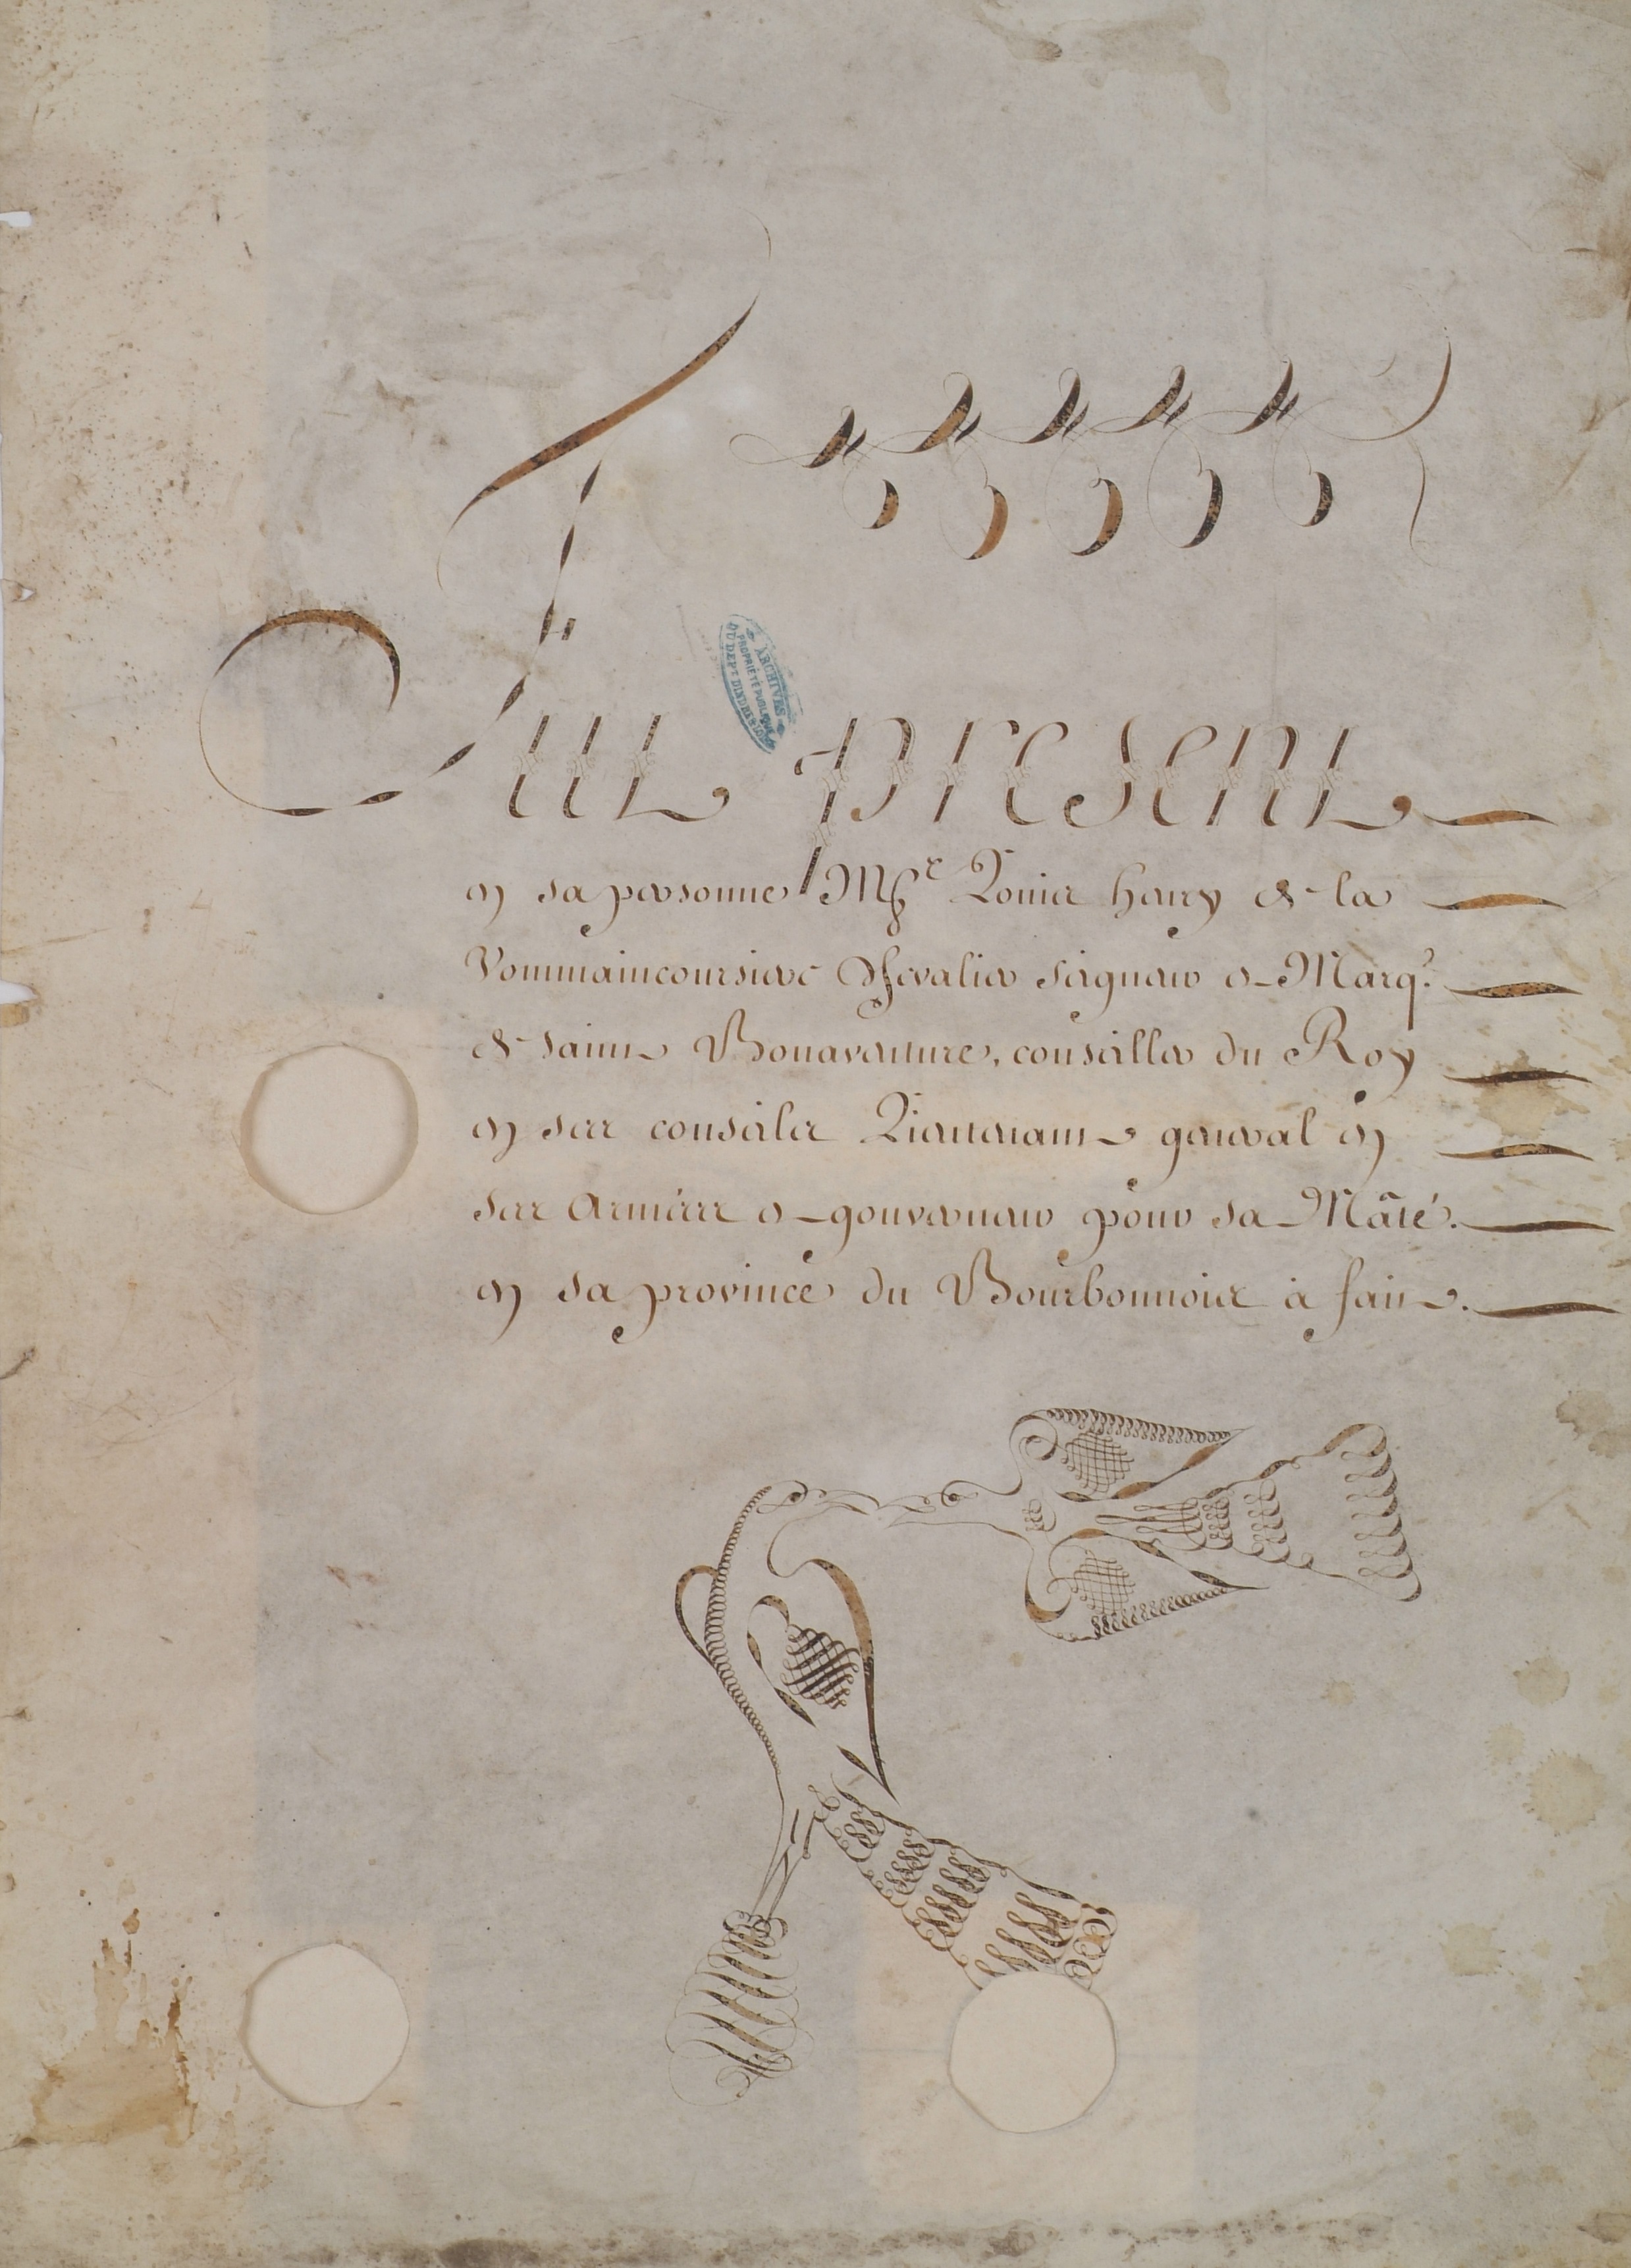 Fut present
en sa personne Msre Louis henry de la
Chevalier seigneur et Marq.
de sainte Bonaventure, conseiller du Roy
en ses conseils Lieutenant general en
ses Armées et gouverneur pour sa Mãté.
en sa province du Bourbonnois à faire.
ARCHIVES
PROPRIÉTÉ PUBLIQUE
DU DEPT D'INDRE & LOIRE